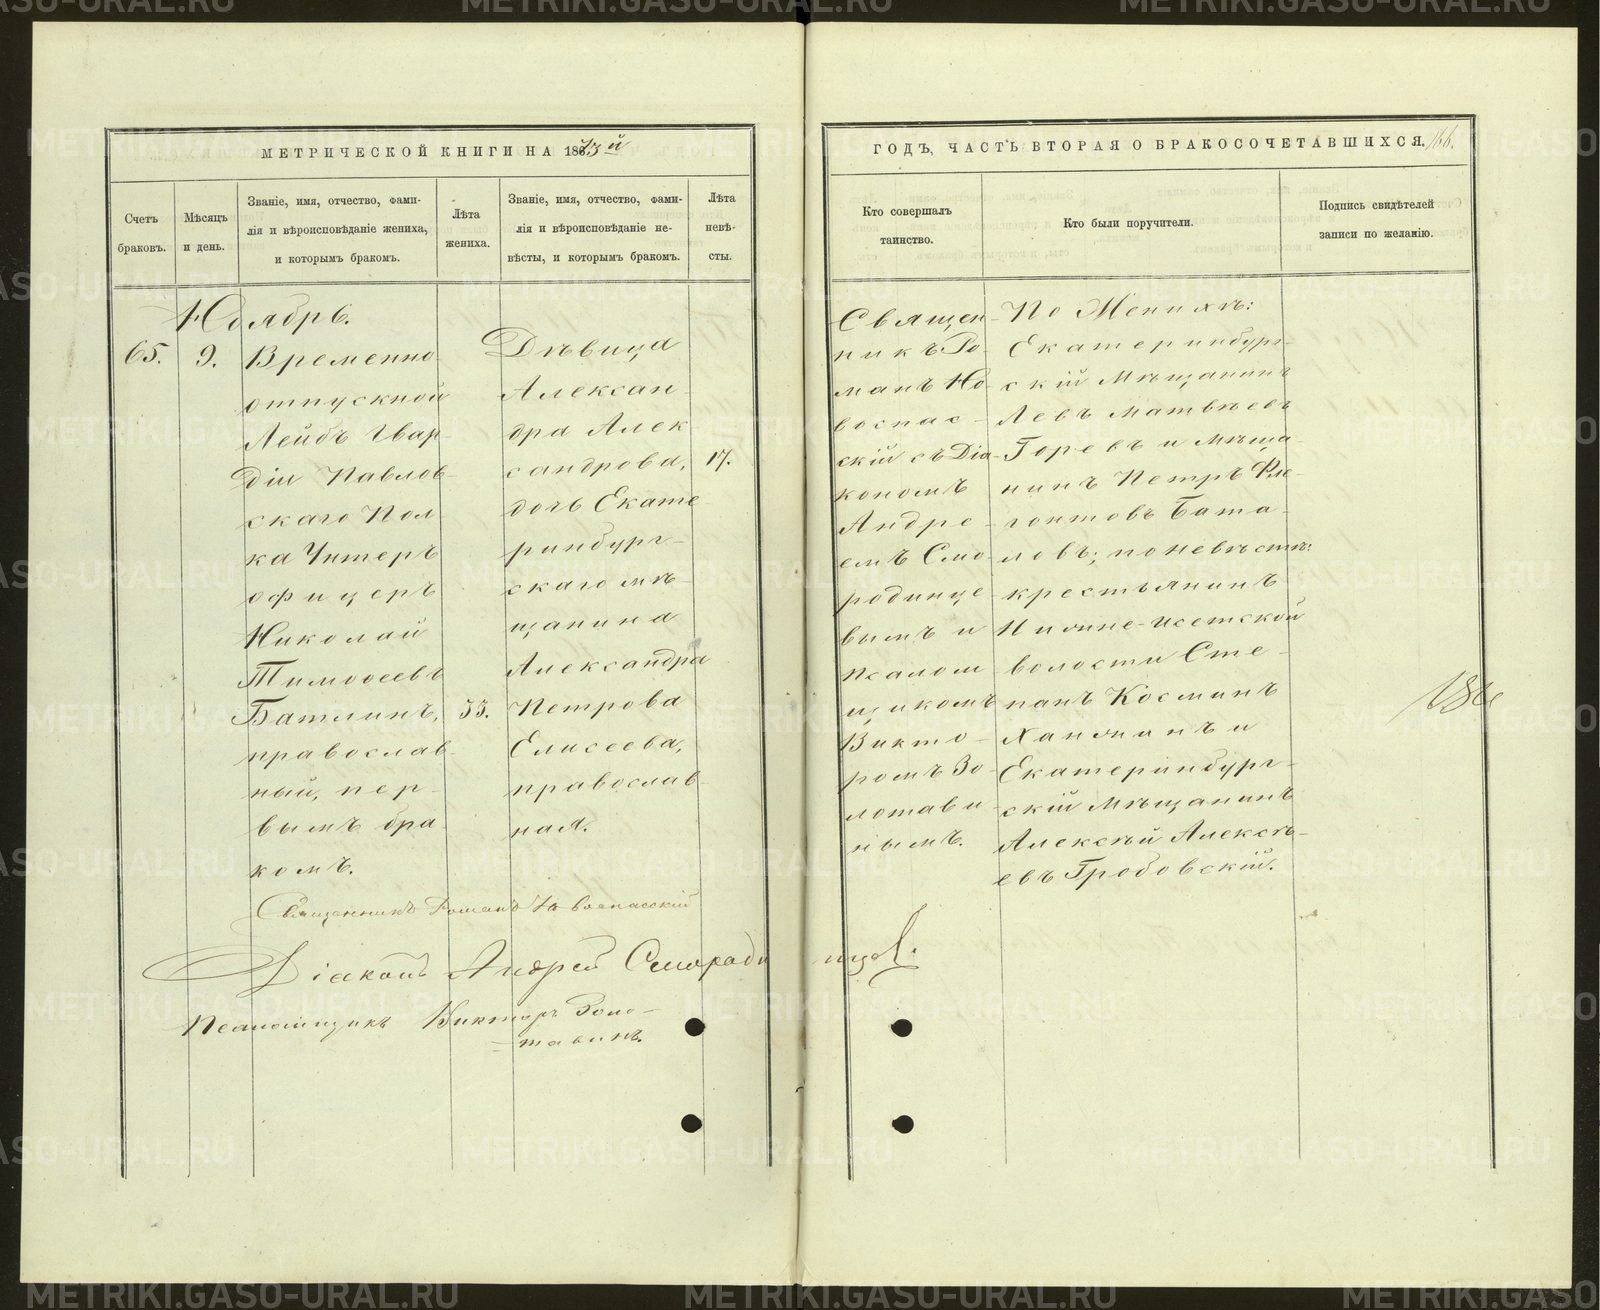 МЕТРИЧЕСКОЙ КНИГИ НА 1873й
Счетъ браковъ.
Мѣсяцъ и день.
Званіе, имя, отчество, фами-
лія и вѣроисповѣданіе жениха,
и которымъ бракомъ.
Лѣта жениха.
Званіе, имя, отчество, фами-
лія и вѣроисповѣданіе не-
вѣсты, и которымъ бракомъ.
Лѣта невѣ-
сты.
Ноябрь.
65.
9.
Временно
отпускной
Лейбъ Гвар-
діи Павлов-
скаго Пол
ка Унтеръ
офицеръ
Николай
Тимоѳеевъ
Батминъ,
православ
ный, пер-
вымъ бра
комъ.
33.
Дѣвица
Алексан-
дра Алек
сандрова,
дочь Екате
ринбург-
скаго мѣ-
щанина
Александра
Петрова
Елисеева,
православ-
ная.
17.
Священникъ Романъ Новоспасскій
Діаконъ Андрей Смородинцовъ.
Псаломщикъ Викторъ Золо-
тавинъ.
ГОДЪ, ЧАСТЬ ВТОРАЯ О БРАКОСОЧЕТАВШИХСЯ.
166.
Кто совершалъ
таинство.
Кто были поручители.
Подпись свидѣтелей
записи по желанію.
Священ-
никъ Ро-
манъ Но-
воспас-
скій съ Діа-
кономъ
Андре-
емъ Смо-
родинце-
вымъ и
псалом
щикомъ
Викто-
ромъ Зо-
лотави-
нымъ.
По Женихѣ:
Екатеринбург-
скій мѣщанинъ
Левъ Матвѣевъ
Горевъ и мѣща-
нинъ Петръ Фле-
гонтовъ Бата-
ловъ; по невѣстѣ:
крестьянинъ
Нижне-исетской
волости Сте-
панъ Косминъ
Ханжинъ и
Екатеринбург-
скій мѣщанинъ
Алексѣй Алексѣ-
евъ Гробовскій.
METRIKI.GASO-URAL.RU